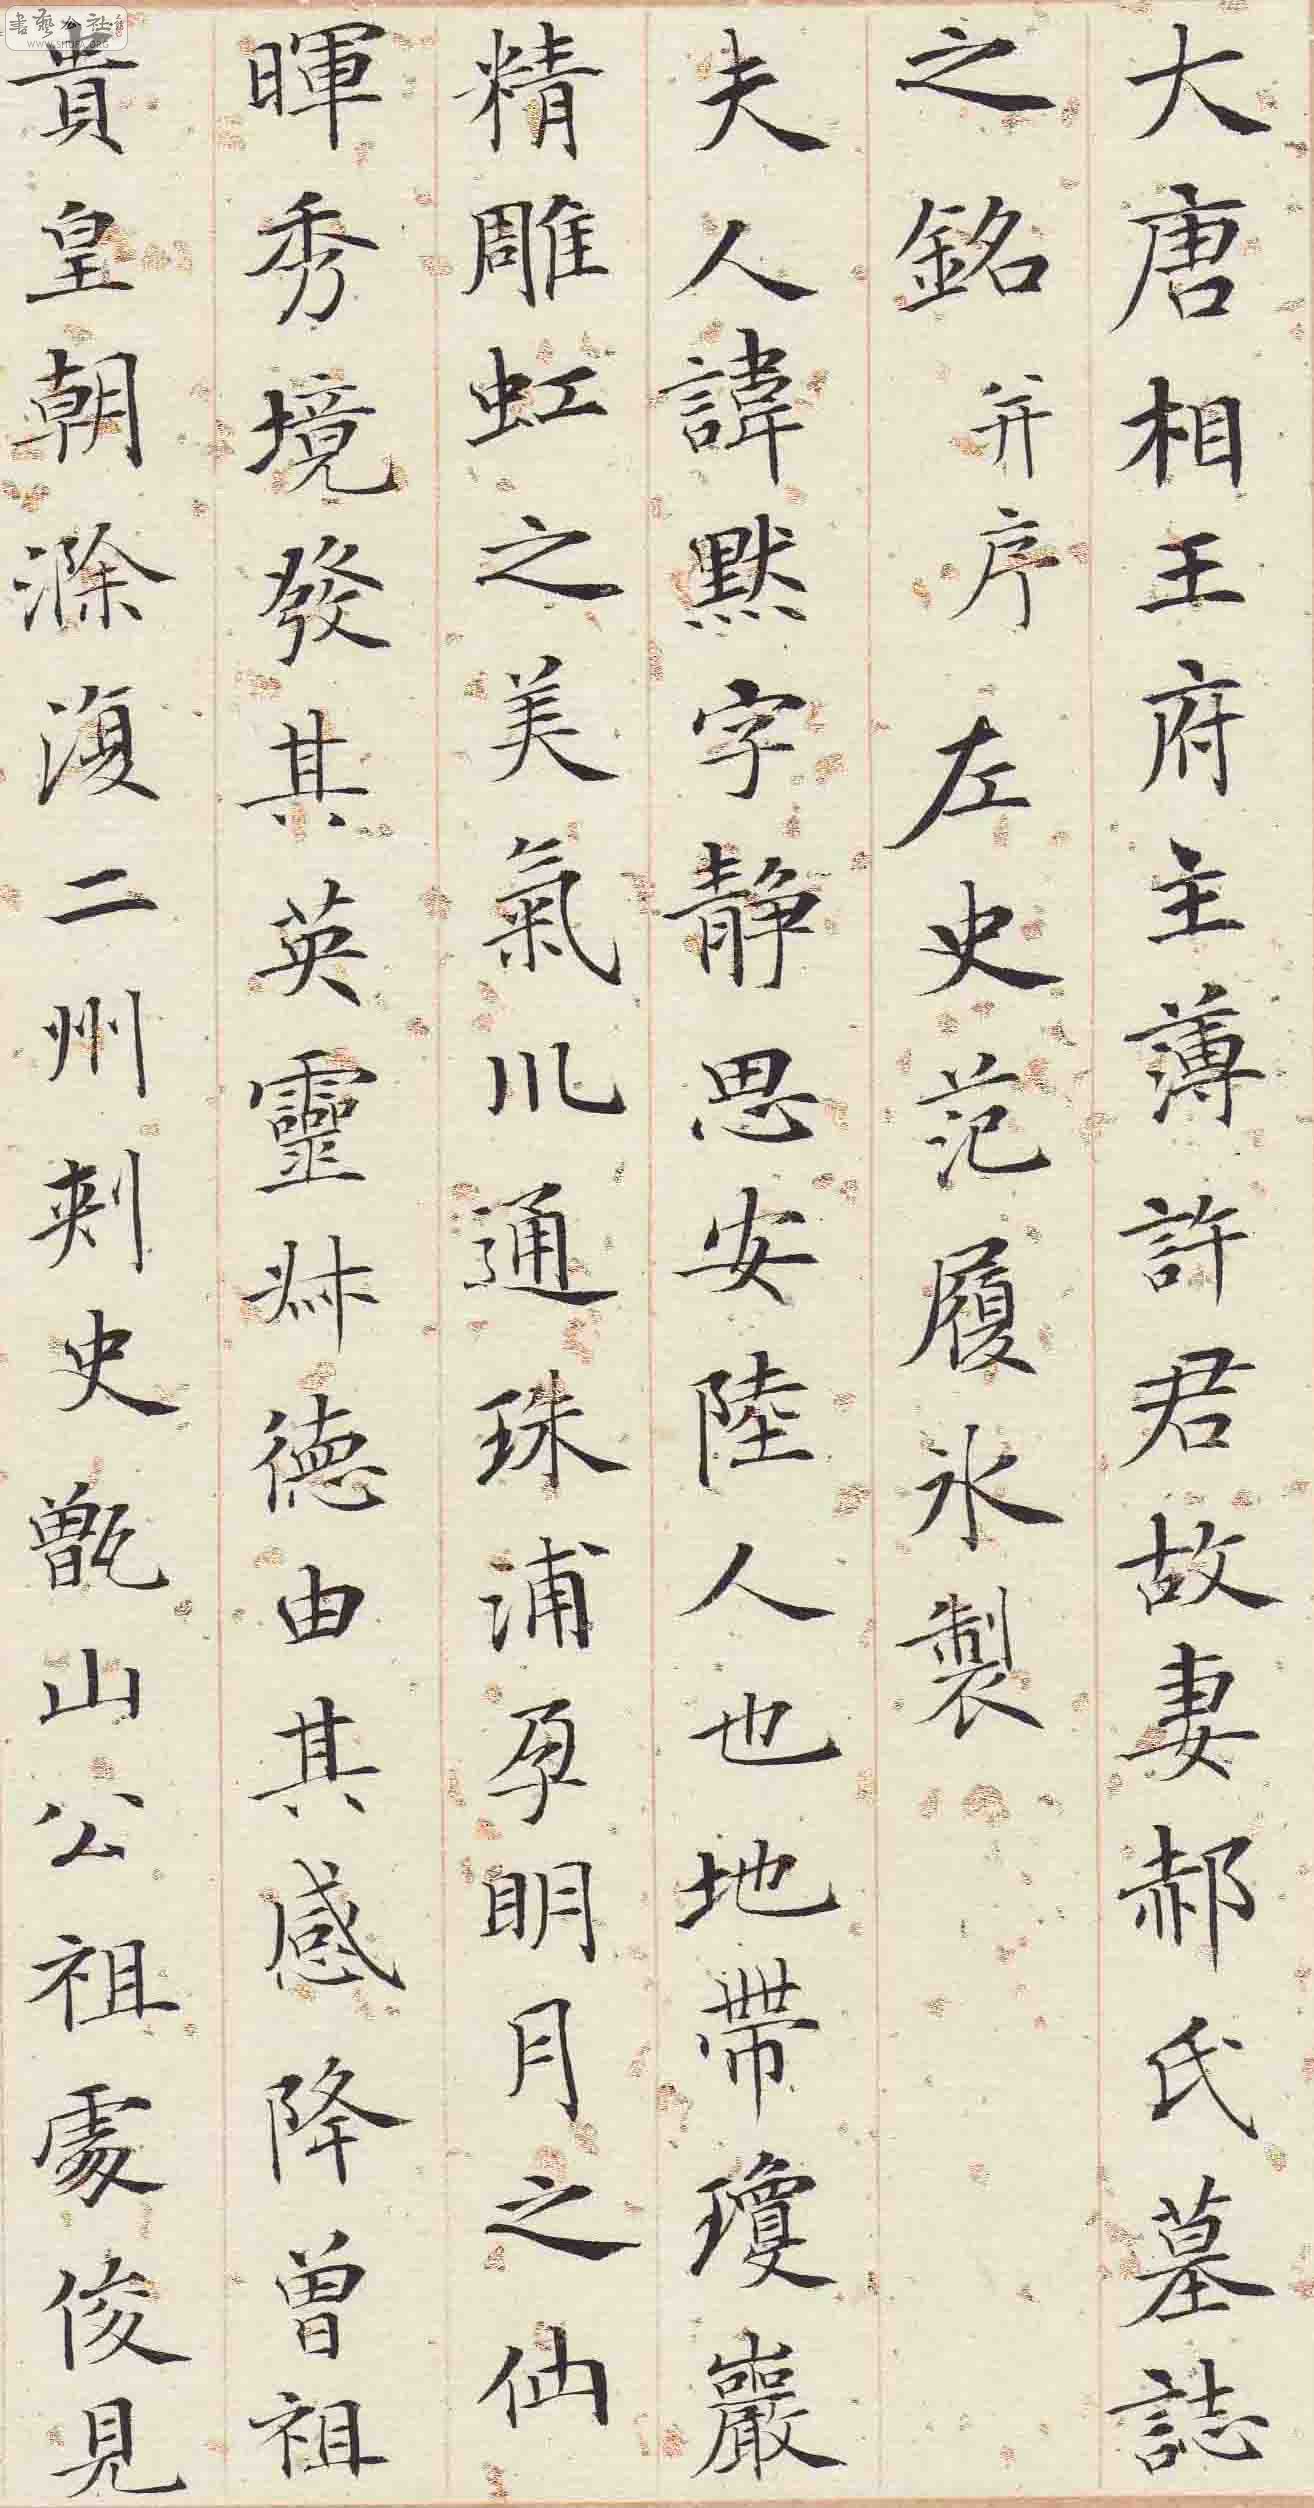 大唐相王府主薄許君故妻郝氏墓誌
之銘并序 左史范履冰製
夫人諱默字静思安陸人也地帶瓊巖
精雕虹之美氣川通珠浦孕明月之仙
暉秀境發其英靈淋德由其感降曾祖
貴皇朝滁澓二州刾史甑山公祖處俊見
書藝公社
WWW.SHUFA.ORG